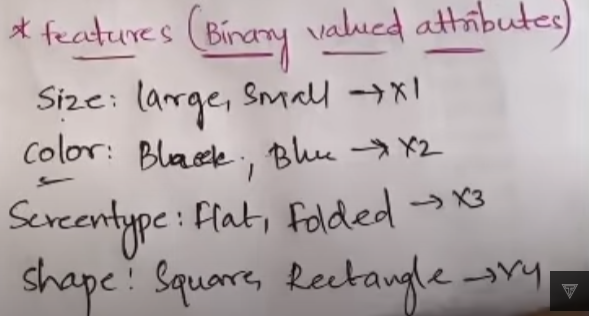 * features (Binary valued attributes)
Size: large, Small → x1
Color: Black, Blue → x2
Screentype: Flat, Folded → x3
Shape: Square, Rectangle → x4